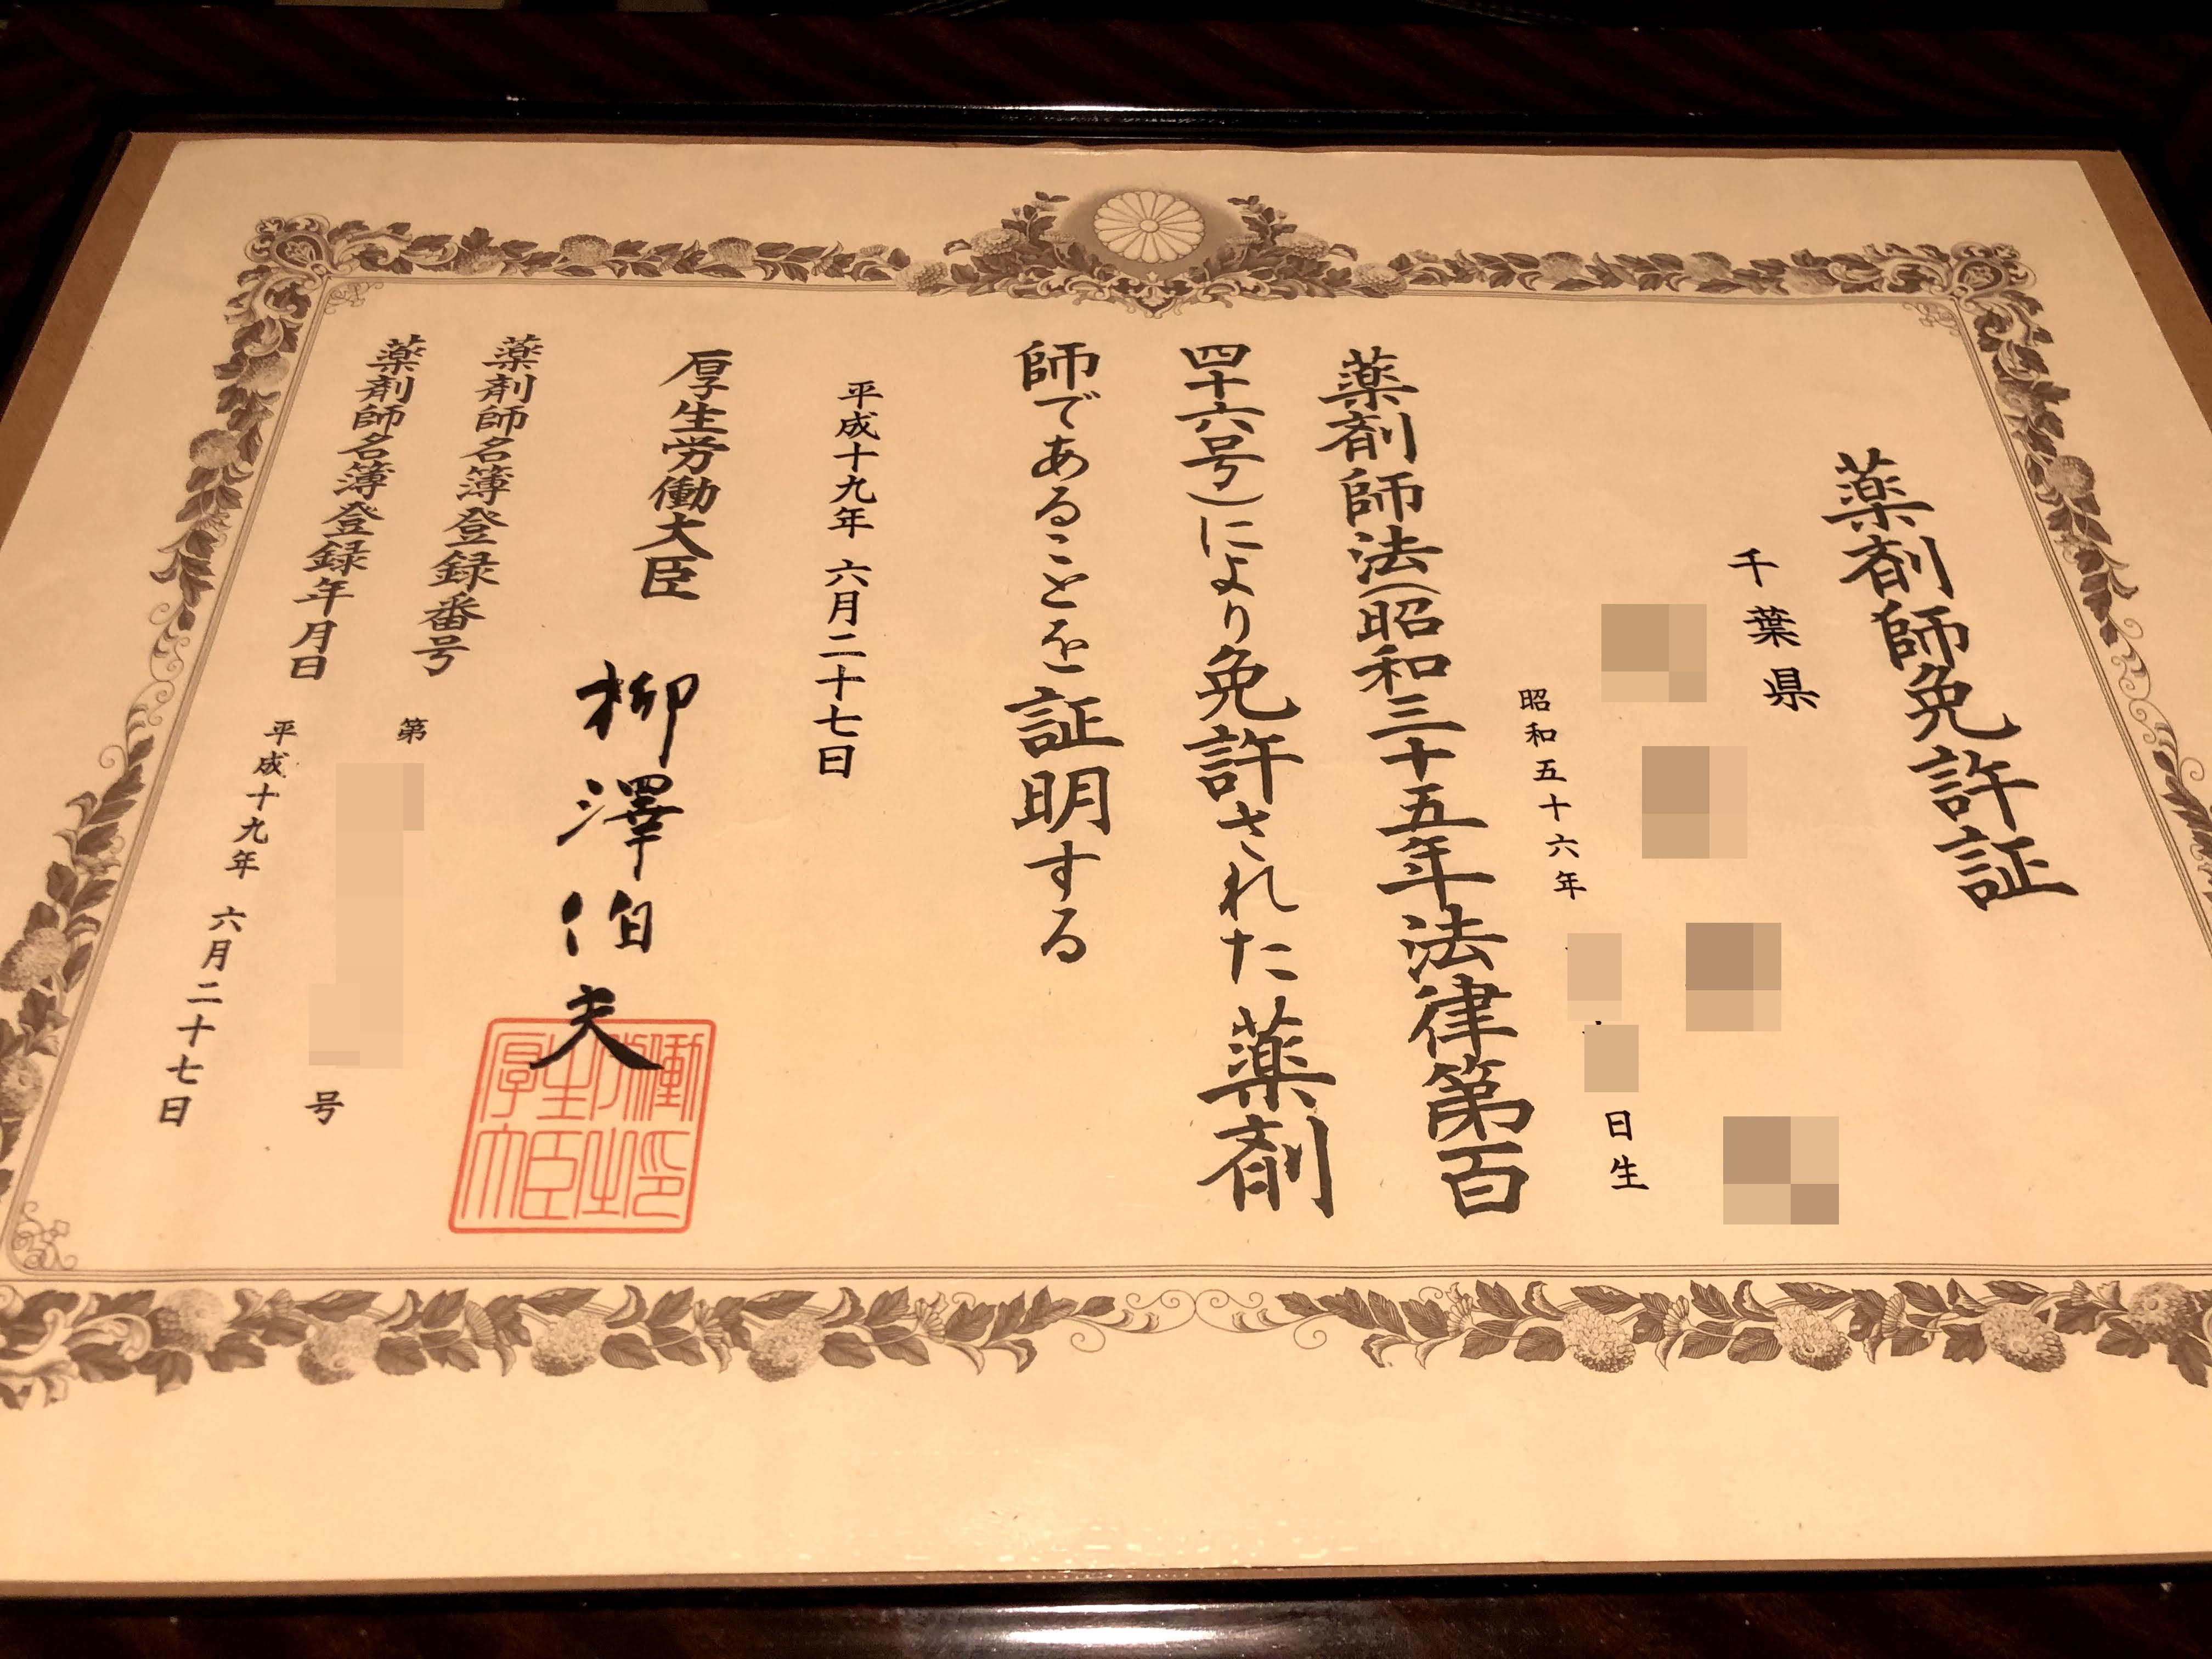 薬剤師免許証
千葉県
昭和五十六年
日生
薬剤師法(昭和三十五年法律第百
四十六号)により免許された薬剤
師であることを証明する
平成十九年 六月二十七日
厚生労働大臣 柳澤伯夫
厚生労働大臣之印
薬剤師名簿登録番号 第
号
薬剤師名簿登録年月日 平成十九年 六月二十七日